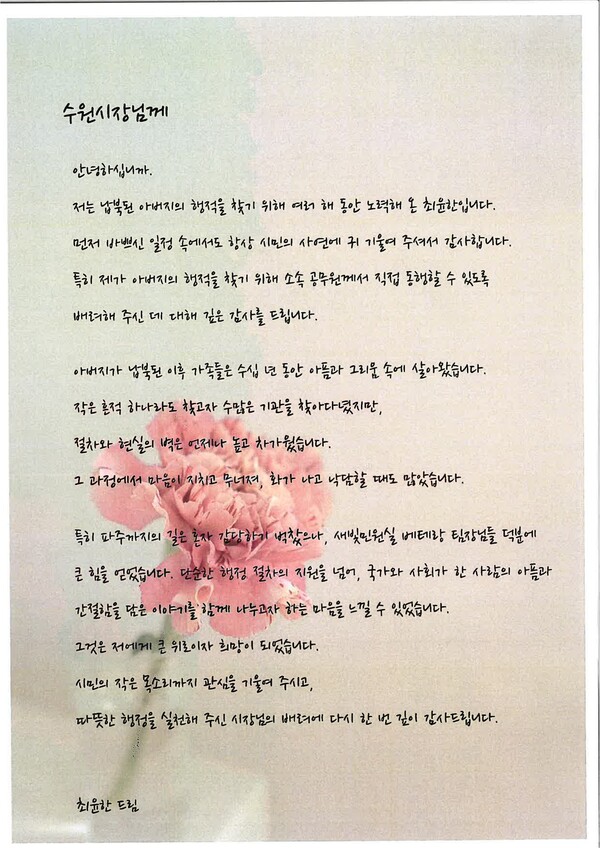 수원시장님께
안녕하십니까.
저는 납북된 아버지의 행적을 찾기 위해 여러 해 동안 노력해 온 최윤한입니다.
먼저 바쁘신 일정 속에서도 항상 시민의 사연에 귀 기울여 주셔서 감사합니다.
특히 제가 아버지의 행적을 찾기 위해 소속 공무원께서 직접 동행할 수 있도록
배려해 주신 데 대해 깊은 감사를 드립니다.
아버지가 납북된 이후 가족들은 수십 년 동안 아픔과 그리움 속에 살아왔습니다.
작은 흔적 하나라도 찾고자 수많은 기관을 찾아다녔지만,
절차와 현실의 벽은 언제나 높고 차가웠습니다.
그 과정에서 마음이 지치고 무너져, 화가 나고 낙담할 때도 많았습니다.
특히 파주까지의 길은 혼자 감당하기 벅찼으나, 새빛민원실 베테랑 팀장님들 덕분에
큰 힘을 얻었습니다. 단순한 행정 절차의 지원을 넘어, 국가와 사회가 한 사람의 아픔과
간절함을 담은 이야기를 함께 나누고자 하는 마음을 느낄 수 있었습니다.
그것은 저에게 큰 위로이자 희망이 되었습니다.
시민의 작은 목소리까지 관심을 기울여 주시고,
따뜻한 행정을 실천해 주신 시장님의 배려에 다시 한 번 깊이 감사드립니다.
최윤한 드림